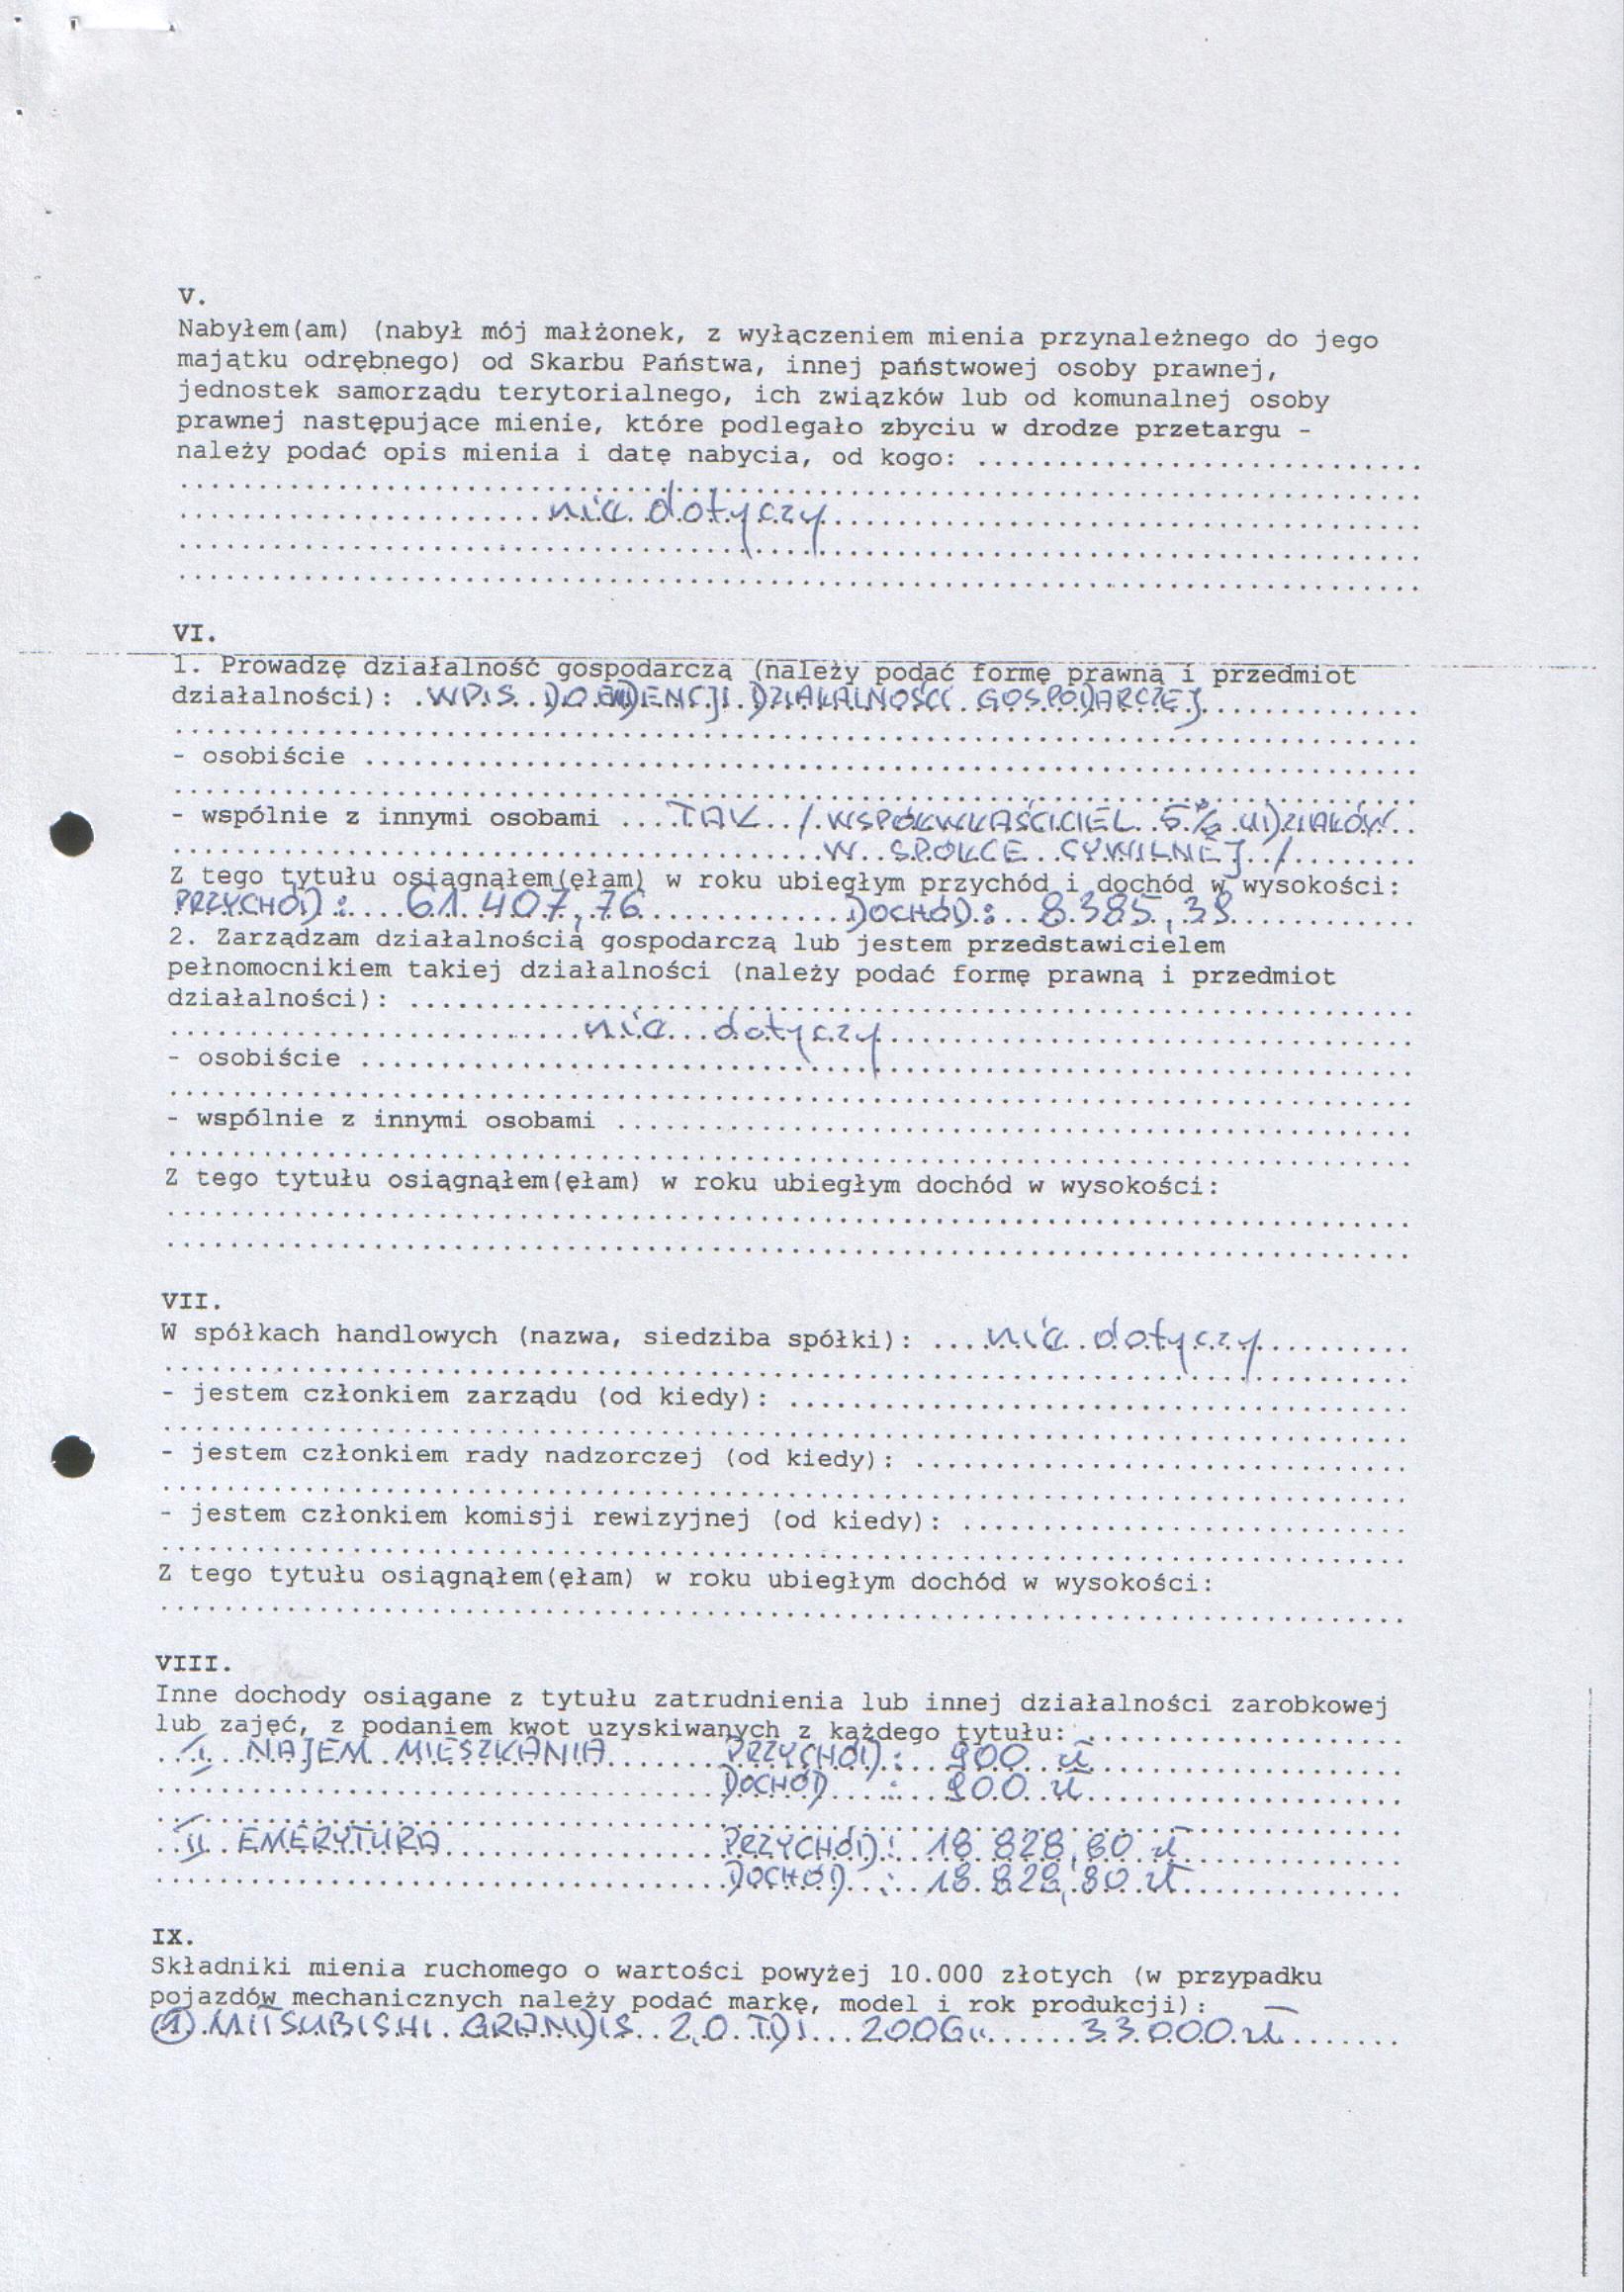 V.
Nabyłem(am) (nabył mój małżonek, z wyłączeniem mienia przynależnego do jego
majątku odrębnego) od Skarbu Państwa, innej państwowej osoby prawnej,
jednostek samorządu terytorialnego, ich związków lub od komunalnej osoby
prawnej następujące mienie, które podlegało zbyciu w drodze przetargu -
należy podać opis mienia i datę nabycia, od kogo:
nie dotyczy
VI.
1. Prowadzę działalność gospodarczą (należy podać formę prawną i przedmiot
działalności): WPIS DO EWIDENCJI DZIAŁALNOŚCI GOSPODARCZEJ
- osobiście
- wspólnie z innymi osobami TAK / WSPÓŁWŁAŚCICIEL 5% UDZIAŁÓW
W SPÓŁCE CYWILNEJ /
Z tego tytułu osiągnąłem(ęłam) w roku ubiegłym przychód i dochód w wysokości:
PRZYCHÓD: 61.407,76 DOCHÓD: 8.385,38
2. Zarządzam działalnością gospodarczą lub jestem przedstawicielem
pełnomocnikiem takiej działalności (należy podać formę prawną i przedmiot
działalności):
nie dotyczy
- osobiście
- wspólnie z innymi osobami
Z tego tytułu osiągnąłem(ęłam) w roku ubiegłym dochód w wysokości:
VII.
W spółkach handlowych (nazwa, siedziba spółki): nie dotyczy
- jestem członkiem zarządu (od kiedy):
- jestem członkiem rady nadzorczej (od kiedy):
- jestem członkiem komisji rewizyjnej (od kiedy):
Z tego tytułu osiągnąłem(ęłam) w roku ubiegłym dochód w wysokości:
VIII.
Inne dochody osiągane z tytułu zatrudnienia lub innej działalności zarobkowej
lub zajęć, z podaniem kwot uzyskiwanych z każdego tytułu:
I. NAJEM MIESZKANIA PRZYCHÓD: zł
DOCHÓD : zł
II. EMERYTURA PRZYCHÓD: zł
DOCHÓD : zł
IX.
Składniki mienia ruchomego o wartości powyżej 10.000 złotych (w przypadku
pojazdów mechanicznych należy podać markę, model i rok produkcji):
① MITSUBISHI GRANDIS 2,0 TDI 2006r. 33.000 zł